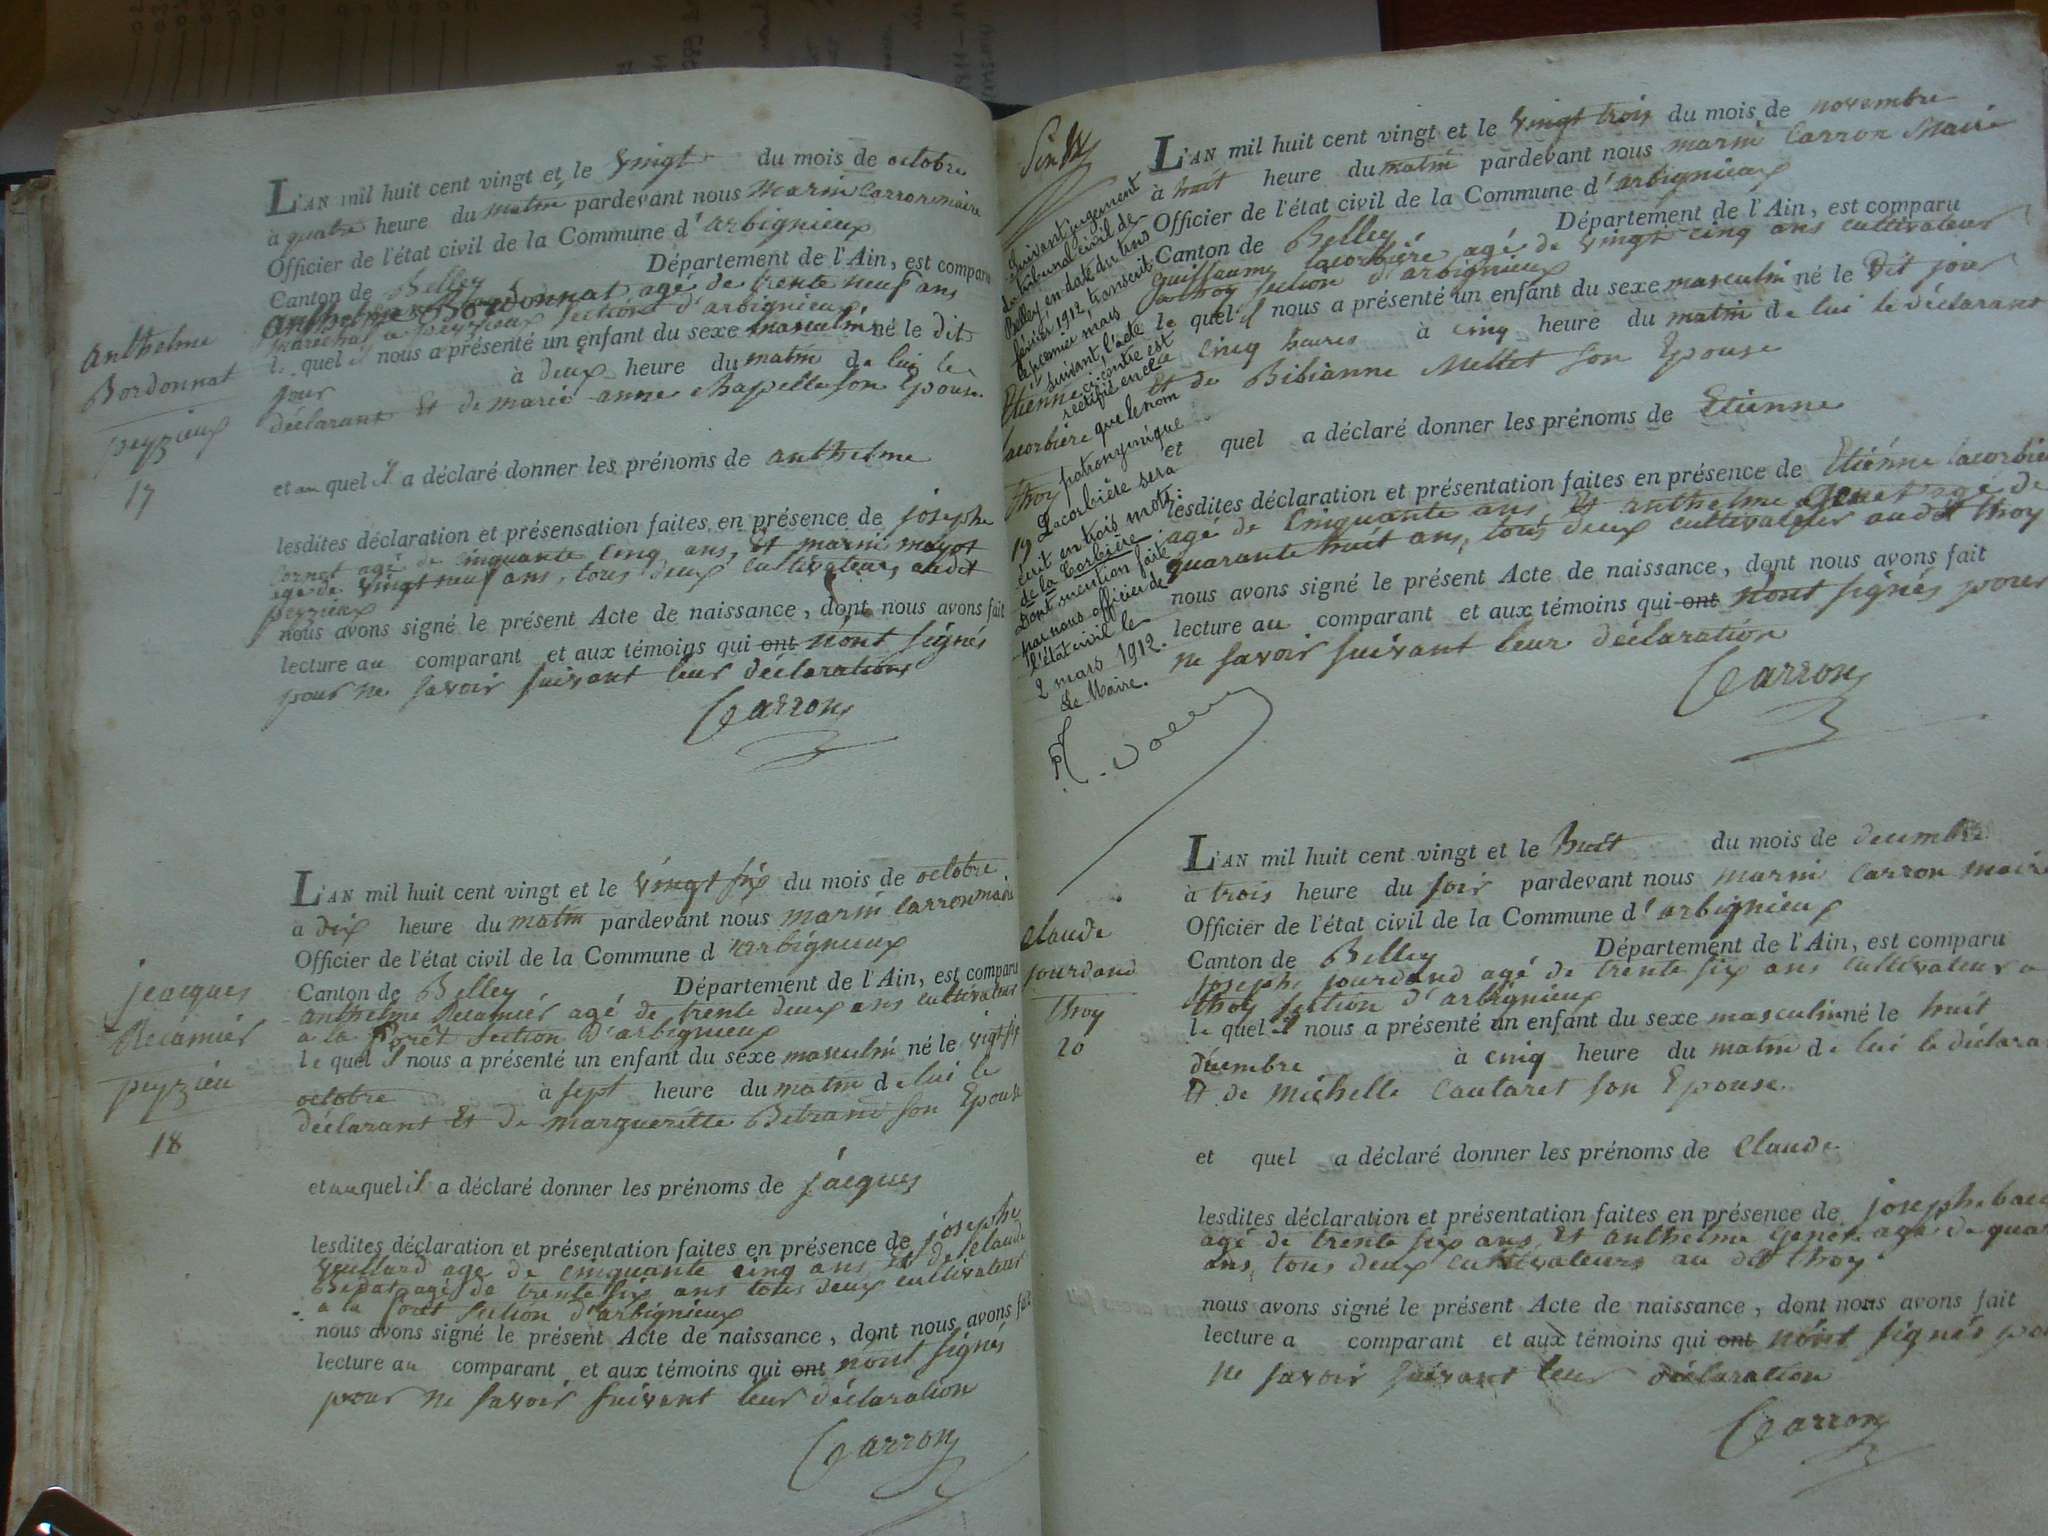 Anthelme
Bordonnat
peyzieux
17
L'AN mil huit cent vingt et le vingt du mois de octobre
à quatre heure du matin pardevant nous marin Carron maire
Officier de l'état civil de la Commune d'arbignieux
Canton de Belley Département de l'Ain, est comparu
anthelme Bordonnat agé de trente neuf ans
marechal a peyzieux section d'arbignieux
le quel il nous a présenté un enfant du sexe masculin né le dit
jour à deux heure du matin de lui le
déclarant Et de marie anne chapelle son Epouse
et au quel il a déclaré donner les prénoms de anthelme
lesdites déclaration et présensation faites en présence de josephe
Cornet agé de cinquante cinq ans, Et marin mayot
agé de vingt neuf ans, tous deux cultivateurs audit
peyzieux
nous avons signé le présent Acte de naissance, dont nous avons fait
lecture au comparant et aux témoins qui ont n'ont signés
pour ne savoir suivant leur déclarations
Carron
jacques
Recamier
peyzieu
18
L'AN mil huit cent vingt et le vingt six du mois de octobre
a dix heure du matin pardevant nous marin Carron maire
Officier de l'état civil de la Commune d'arbignieux
Canton de Belley Département de l'Ain, est comparu
anthelme Recamier agé de trente deux ans cultivateur
a la forêt section d'arbignieux
le quel il nous a présenté un enfant du sexe masculin né le vigt six
octobre à sept heure du matin de lui le
déclarant Et de margueritte Betrand son Epouse
et au quel il a déclaré donner les prénoms de jacques
lesdites déclaration et présentation faites en présence de josephe
Vuillard age de cinquante cinq ans Et de Claude
agé de trente six ans tous deux cultivateurs
a la forêt section d'arbignieux
nous avons signé le présent Acte de naissance, dont nous avons fait
lecture au comparant et aux témoins qui ont n'ont signés
pour ne savoir suivant leur déclaration
Carron
Suivant jugement
du tribunal civil de
Belley, en date du
février 1912, transcrit
le premier mars
suivant, l'acte
ci-contre est
rectifié en ce
que le nom
patronymique
Lacorbière sera
écrit en trois mots:
de la Corbière
Dont mention faite
par nous officier de
l'état civil le
2 mars 1912.
Le Maire.
Etienne
Lacorbière
thoy
19
L'AN mil huit cent vingt et le vingt trois du mois de novembre
à huit heure du matin pardevant nous marin Carron Maire
Officier de l'état civil de la Commune d'arbignieux
Canton de Belley Département de l'Ain, est comparu
guillaume Lacorbière agé de vingt cinq ans cultivateur
a thoy section d'arbignieux
le quel il nous a présenté un enfant du sexe masculin né le Dit jour
a cinq heures à cinq heure du matin de lui le déclarant
Et de Bibianne Mettet son Epouse
et quel a déclaré donner les prénoms de Etienne
lesdites déclaration et présentation faites en présence de Etiénne Lacorbière
agé de Cinquante ans, Et anthelme genet agé de
quarante huit ans, tous deux cultivateur audit thoy
nous avons signé le présent Acte de naissance, dont nous avons fait
lecture au comparant et aux témoins qui ont n'ont signés pour
ne savoir suivant leur déclaration
Carron
Claude
jourdand
thoy
20
L'AN mil huit cent vingt et le huit du mois de decembre
à trois heure du soir pardevant nous marin Carron maire
Officier de l'état civil de la Commune d'arbignieux
Canton de Belley Département de l'Ain, est comparu
joseph jourdand agé de trente six ans Cultivateur a
thoy section d'arbignieux
le quel il nous a présenté un enfant du sexe masculin né le huit
décembre à cinq heure du matin de lui le déclara
Et de Michelle Cautaret son Epouse
et quel a déclaré donner les prénoms de Claude
lesdites déclaration et présentation faites en présence de josephe
agé de trente six ans Et anthelme genet agé de qua
ans, tous deux cultivateurs au dit thoy
nous avons signé le présent Acte de naissance, dont nous avons fait
lecture a comparant et aux témoins qui ont n'ont signés po
ne savoir suivant leur déclaration
Carron